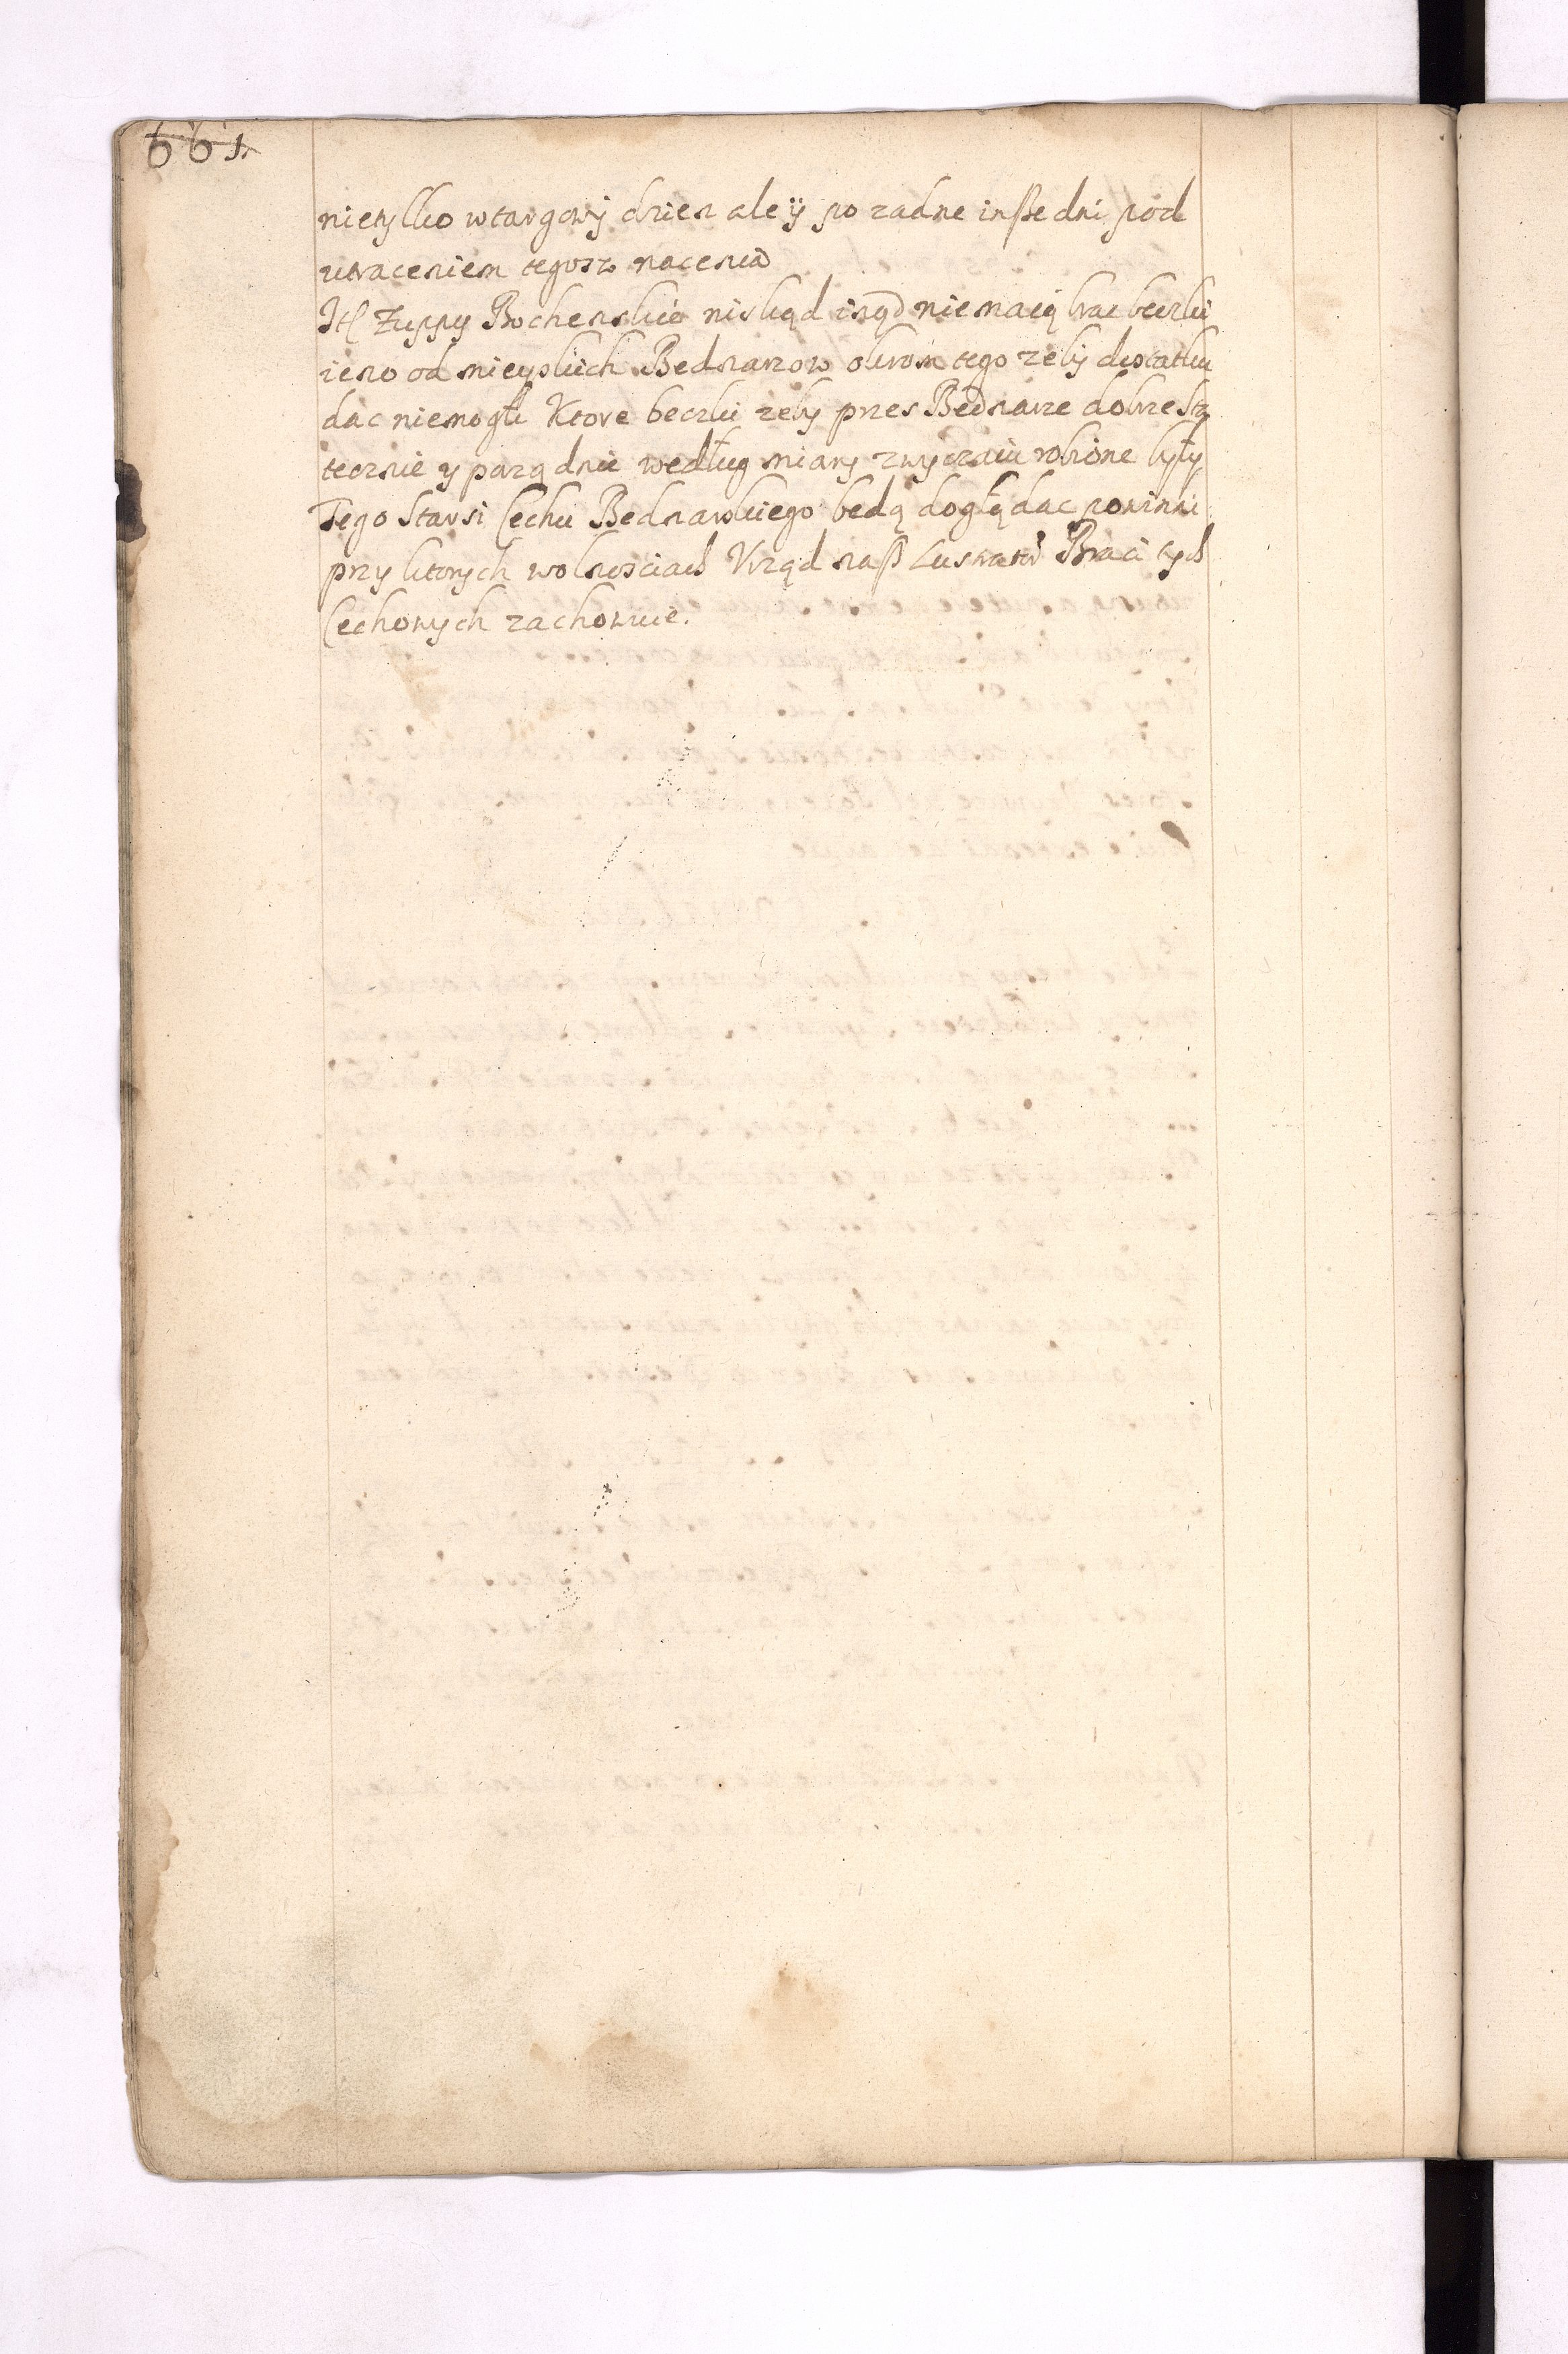 661
nietylko wtargowy dzien ale ÿ po zadne insße dni pod
utraceniem tegosz nacenia
Itl Zuppy Bochenskie niskąd inąd niemaią brac beczki
ieno od mieyskich Bednarzow okrom tego zeby dostatku
dac niemogli Ktore beczki zeby przes Bednarze dobrze Sta
tecznie y parządnie według miary zwyczaiu robione były
Tego Starsi Cechu Bednarskiego bedą doglądac powinni
przy ktorych wolnosciach Vrząd naß Braci tych
Cechowych zachowuie.